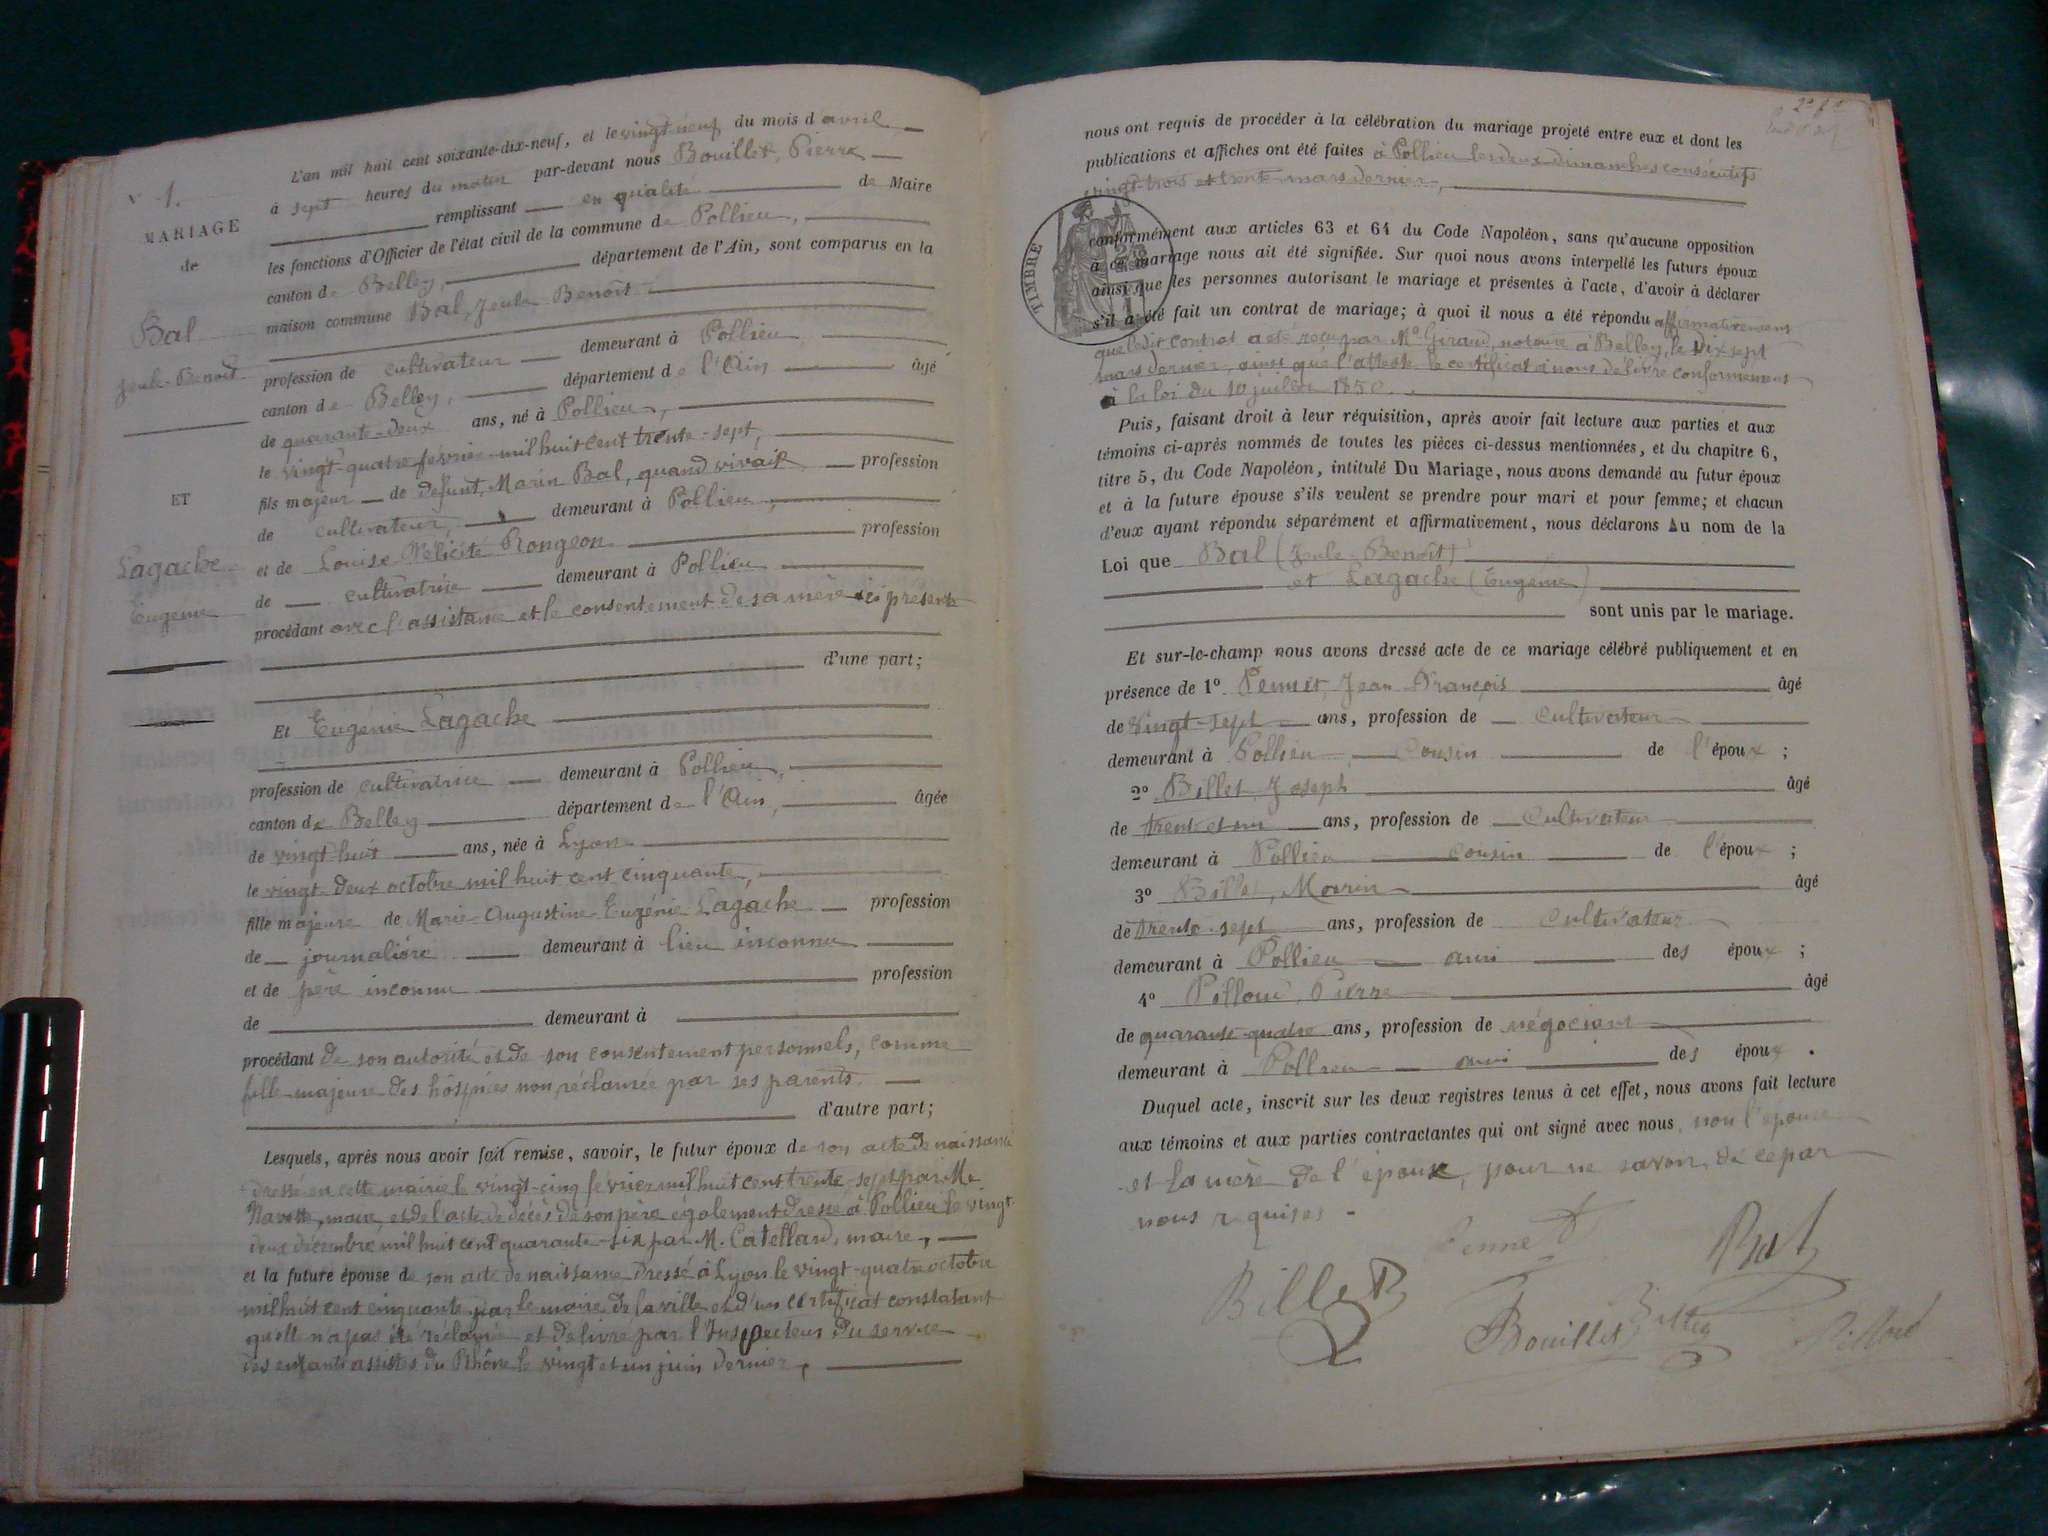 N° 1.
MARIAGE
de
Bal
Jeule-Benoît
ET
Lagache
Eugénie
L'an mil huit cent soixante-dix-neuf, et le vingt-neuf du mois d'avril
à sept heures du matin par-devant nous Bouillet, Pierre
remplissant en qualité de Maire
les fonctions d'Officier de l'état civil de la commune de Pollieu,
canton de Belley, département de l'Ain, sont comparus en la
maison commune Bal, Jeule Benoît
profession de cultivateur demeurant à Pollieu
canton de Belley, département de l'Ain âgé
de quarante-deux ans, né à Pollieu,
le vingt-quatre février mil huit cent trente-sept,
fils majeur de défunt, Marin Bal, quand vivait profession
de cultivateur, demeurant à Pollieu,
et de Louise Félicité Rongeon profession
de cultivatrice demeurant à Pollieu
procédant avec l'assistance et le consentement de sa mère ici présente
d'une part;
Et Eugénie Lagache
profession de cultivatrice demeurant à Pollieu,
canton de Belley département de l'Ain, âgée
de vingt-huit ans, née à Lyon
le vingt-deux octobre mil huit cent cinquante,
fille majeure de Marie-Augustine-Eugénie Lagache profession
de journalière demeurant à lieu inconnu
et de père inconnu profession
de demeurant à
procédant de son autorité et de son consentement personnels, comme
fille majeure des hospices non réclamée par ses parents.
d'autre part;
Lesquels, après nous avoir fait remise, savoir, le futur époux de son acte de naissance
dressé en cette mairie le vingt-cinq février mil huit cent trente-sept par M.
maire, et de l'acte de décès de son père également dressé à Pollieu le vingt
deux décembre mil huit cent quarante-six par M. Catelland, maire,
et la future épouse de son acte de naissance dressé à Lyon le vingt-quatre octobre
mil huit cent cinquante par le maire de la ville et d'un certificat constatant
qu'elle n'a pas été réclamée et délivré par l'Inspecteur du service
des enfants assistés du Rhône le vingt et un juin dernier,
nous ont requis de procéder à la célébration du mariage projeté entre eux et dont les
publications et affiches ont été faites à Pollieu les deux dimanches consécutifs
vingt-trois et trente mars dernier,
TIMBRE
conformément aux articles 63 et 64 du Code Napoléon, sans qu'aucune opposition
à ce mariage nous ait été signifiée. Sur quoi nous avons interpellé les futurs époux
ainsi que les personnes autorisant le mariage et présentes à l'acte, d'avoir à déclarer
s'il a été fait un contrat de mariage; à quoi il nous a été répondu affirmativement
que ledit contrat a été reçu par Me Giraud, notaire à Belley, le dix sept
mars dernier, ainsi que l'atteste le certificat à nous délivré conformément
à la loi du 10 juillet 1850.
Puis, faisant droit à leur réquisition, après avoir fait lecture aux parties et aux
témoins ci-après nommés de toutes les pièces ci-dessus mentionnées, et du chapitre 6,
titre 5, du Code Napoléon, intitulé Du Mariage, nous avons demandé au futur époux
et à la future épouse s'ils veulent se prendre pour mari et pour femme; et chacun
d'eux ayant répondu séparément et affirmativement, nous déclarons Au nom de la
Loi que Bal (Jeule-Benoît)
et Lagache (Eugénie)
sont unis par le mariage.
Et sur-le-champ nous avons dressé acte de ce mariage célébré publiquement et en
présence de 1° Pennet, Jean François âgé
de vingt-sept ans, profession de cultivateur
demeurant à Pollieu, cousin de l'époux ;
2° Billet Joseph âgé
de trente et un ans, profession de cultivateur
demeurant à Pollieu cousin de l'époux ;
3° Billet, Marin âgé
de trente-sept ans, profession de cultivateur
demeurant à Pollieu ami des époux ;
4° Pilloud, Pierre âgé
de quarante-quatre ans, profession de négociant
demeurant à Pollieu ami des époux .
Duquel acte, inscrit sur les deux registres tenus à cet effet, nous avons fait lecture
aux témoins et aux parties contractantes qui ont signé avec nous, non l'épouse
et la mère de l'époux, pour ne savoir, de ce par
nous requises.
Pennet
Bal
Billet
Bouillet
Billet
Pilloud